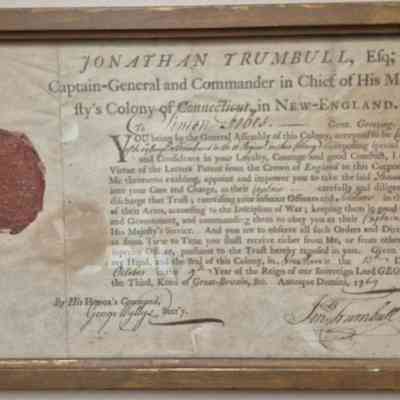 JONATHAN TRUMBULL, Esq;
Captain-General and Commander in Chief of His Ma
sty's Colony of Connecticut, in NEW-ENGLAND.
To Simeon Gent. Greeting.
YOU being by the General Assembly of this Colony, accepted to be
reposing special
and Confidence in your Loyalty, Courage and good Conduct, I
Virtue of the Letters Patent from the Crown of England to this Corpor
Me thereunto enabling, appoint and impower you to take the said
into your Care and Charge, as their Captain carefully and diligen
discharge that Trust; exercising your inferior Officers and Soldiers in
of their Arms, according to the Discipline of War; keeping them in good
and Government, and commanding them to obey you as their Captain
His Majesty's Service. And you are to observe all such Orders and Direct
as from Time to Time you shall receive either from Me, or from other
superior Officer, pursuant to the Trust hereby reposed in you. Given
my Hand, and the Seal of this Colony, in New Haven the Day
October in the 9th Year of the Reign of our Sovereign Lord GEO
the Third, KING of Great-Britain, &c. Annoque Domini, 1769
By His Honor's Command,
George Wyllys Secr'y.
Jonth Trumbull